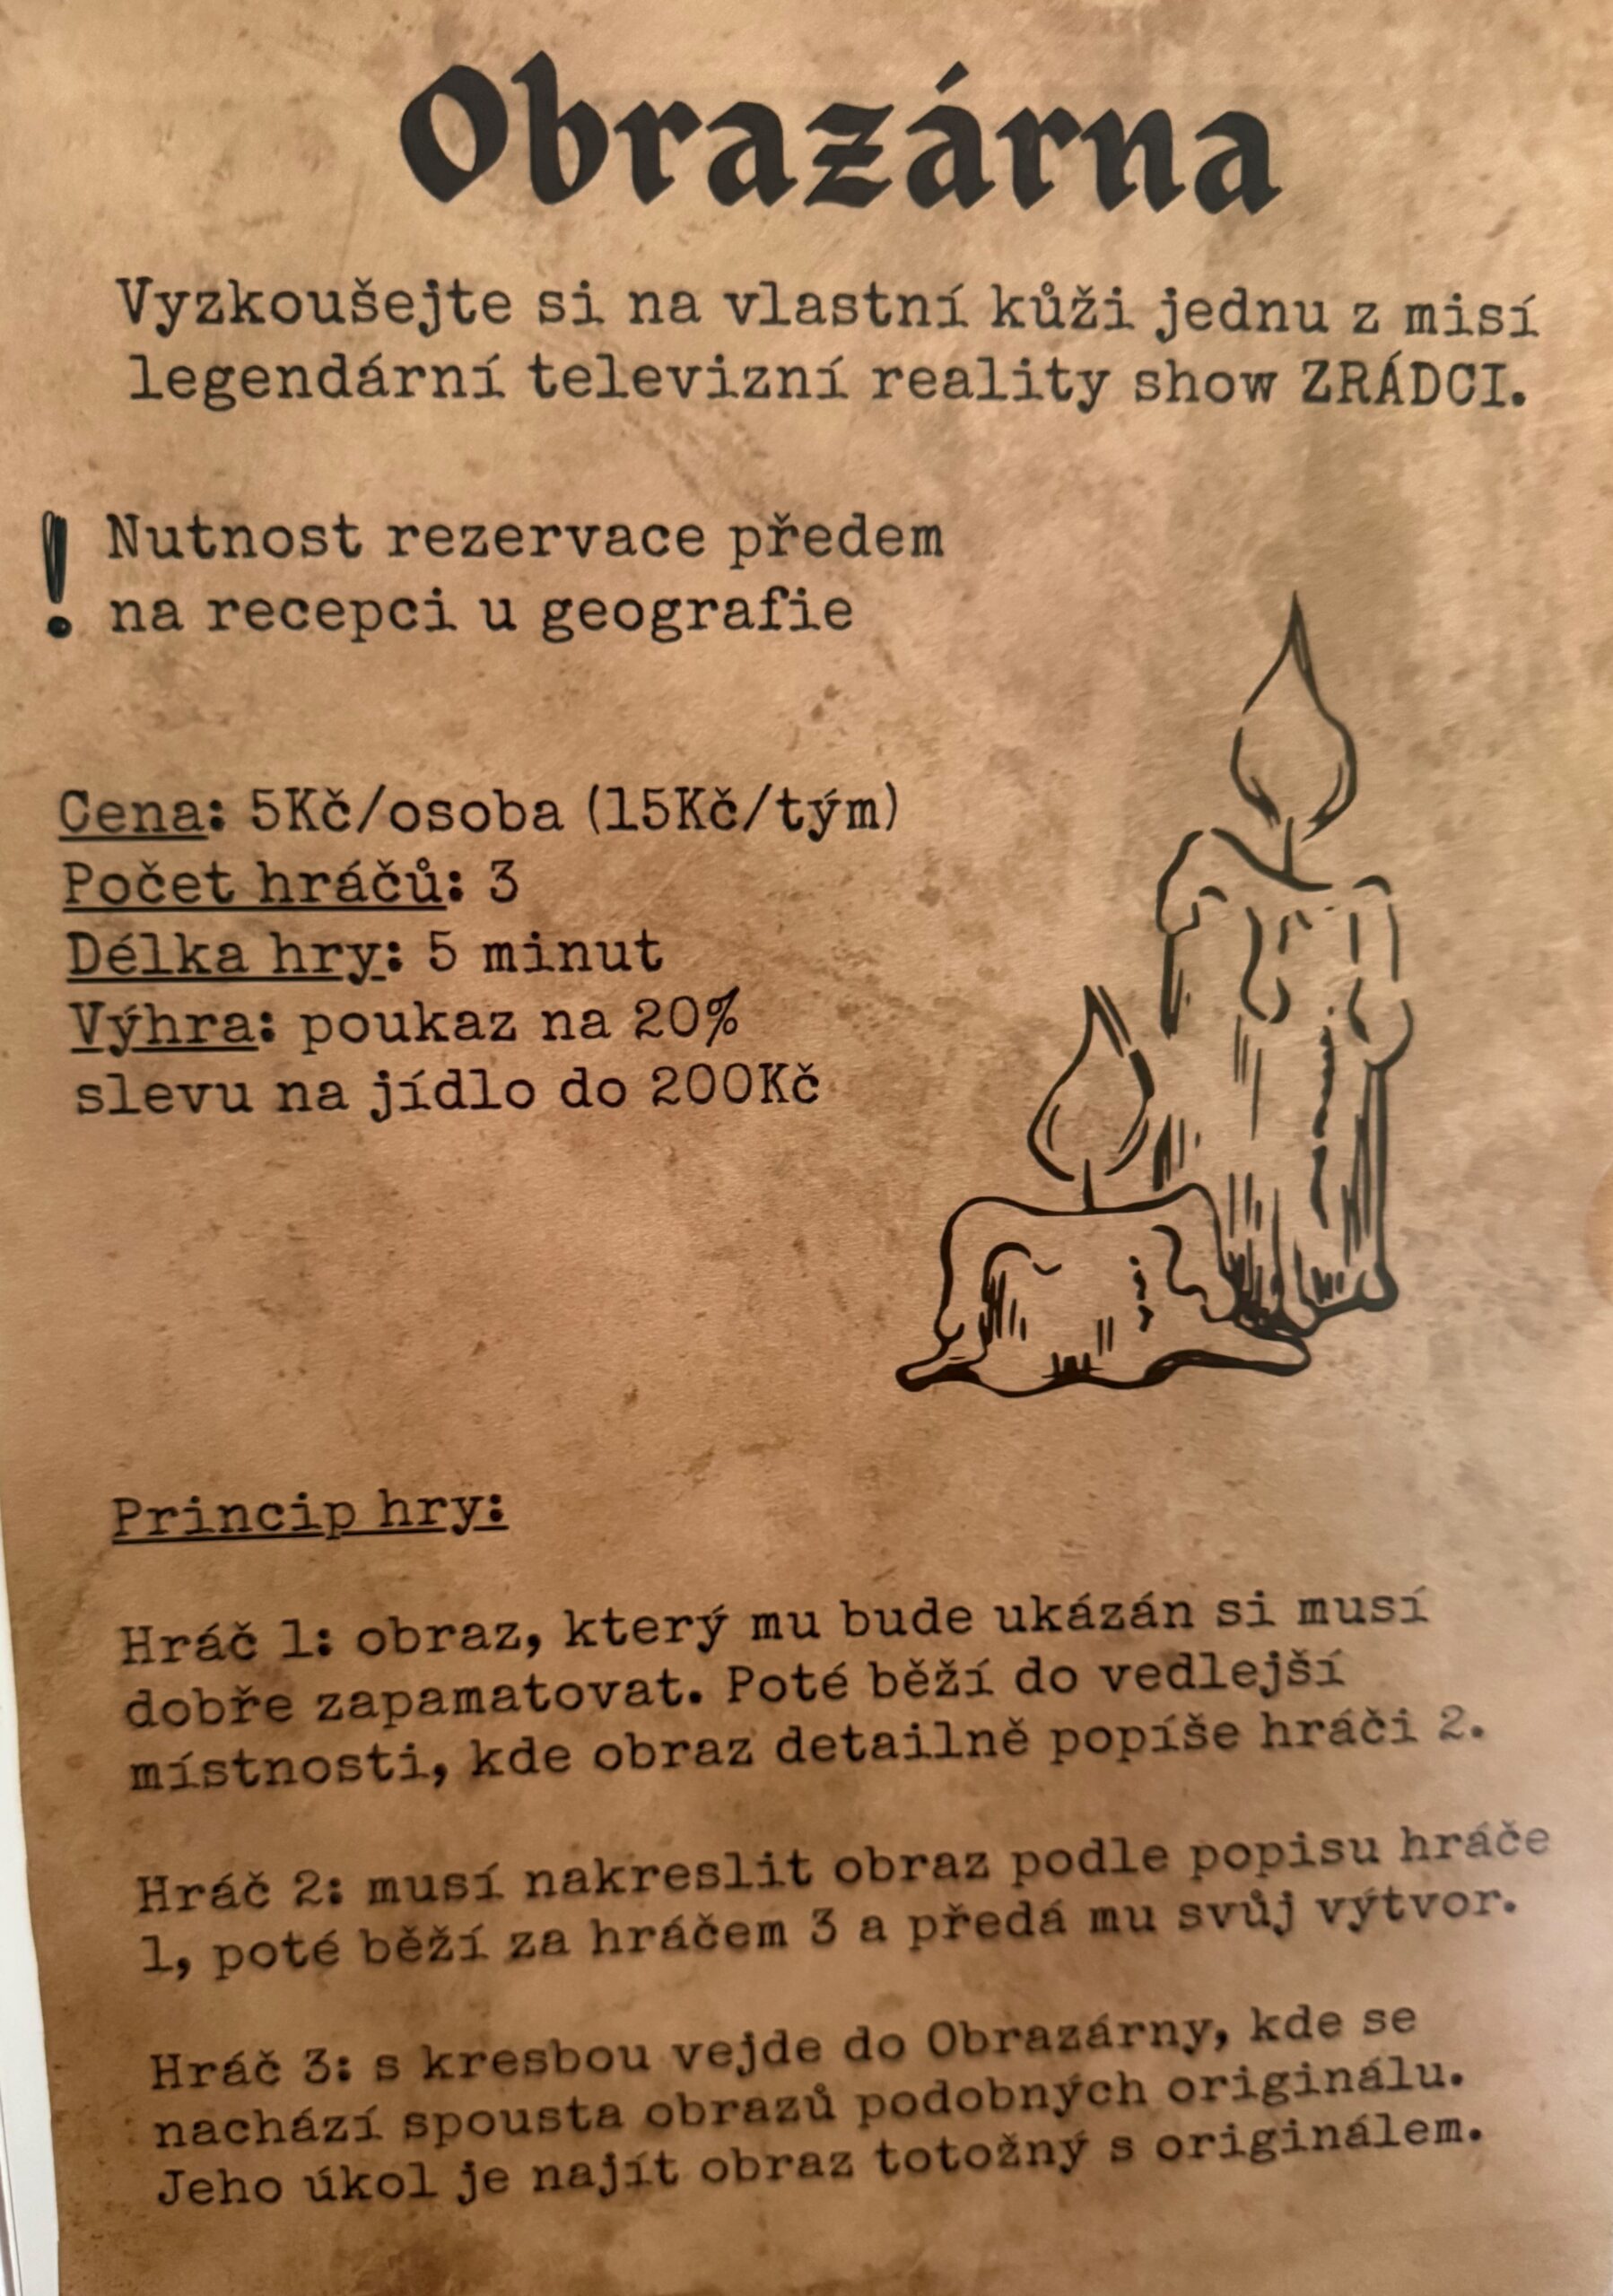 Obrazárna
Vyzkoušejte si na vlastní kůži jednu z misí
legendární televizní reality show ZRÁDCI.
! Nutnost rezervace předem
na recepci u geografie
Cena: 5Kč/osoba (15Kč/tým)
Počet hráčů: 3
Délka hry: 5 minut
Výhra: poukaz na 20%
slevu na jídlo do 200Kč
Princip hry:
Hráč 1: obraz, který mu bude ukázán si musí
dobře zapamatovat. Poté běží do vedlejší
místnosti, kde obraz detailně popíše hráči 2.
Hráč 2: musí nakreslit obraz podle popisu hráče
1, poté běží za hráčem 3 a předá mu svůj výtvor.
Hráč 3: s kresbou vejde do Obrazárny, kde se
nachází spousta obrazů podobných originálu.
Jeho úkol je najít obraz totožný s originálem.